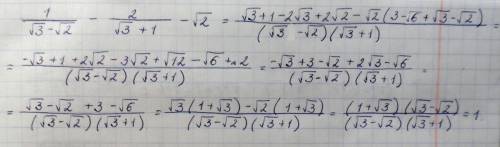 1/(√3-√2) - 2/(√3+1) - √2 = (√3+1-2√3+2√2-√2(3-√6+√3-√2))/((√3-√2)(√3+1)) =
= (-√3+1+2√2-3√2+√12-√6+2)/((√3-√2)(√3+1)) = (-√3+3-√2+2√3-√6)/((√3-√2)(√3+1)) =
= (√3-√2+3-√6)/((√3-√2)(√3+1)) = (√3(1+√3)-√2(1+√3))/((√3-√2)(√3+1)) = ((1+√3)(√3-√2))/((√3-√2)(√3+1)) = 1